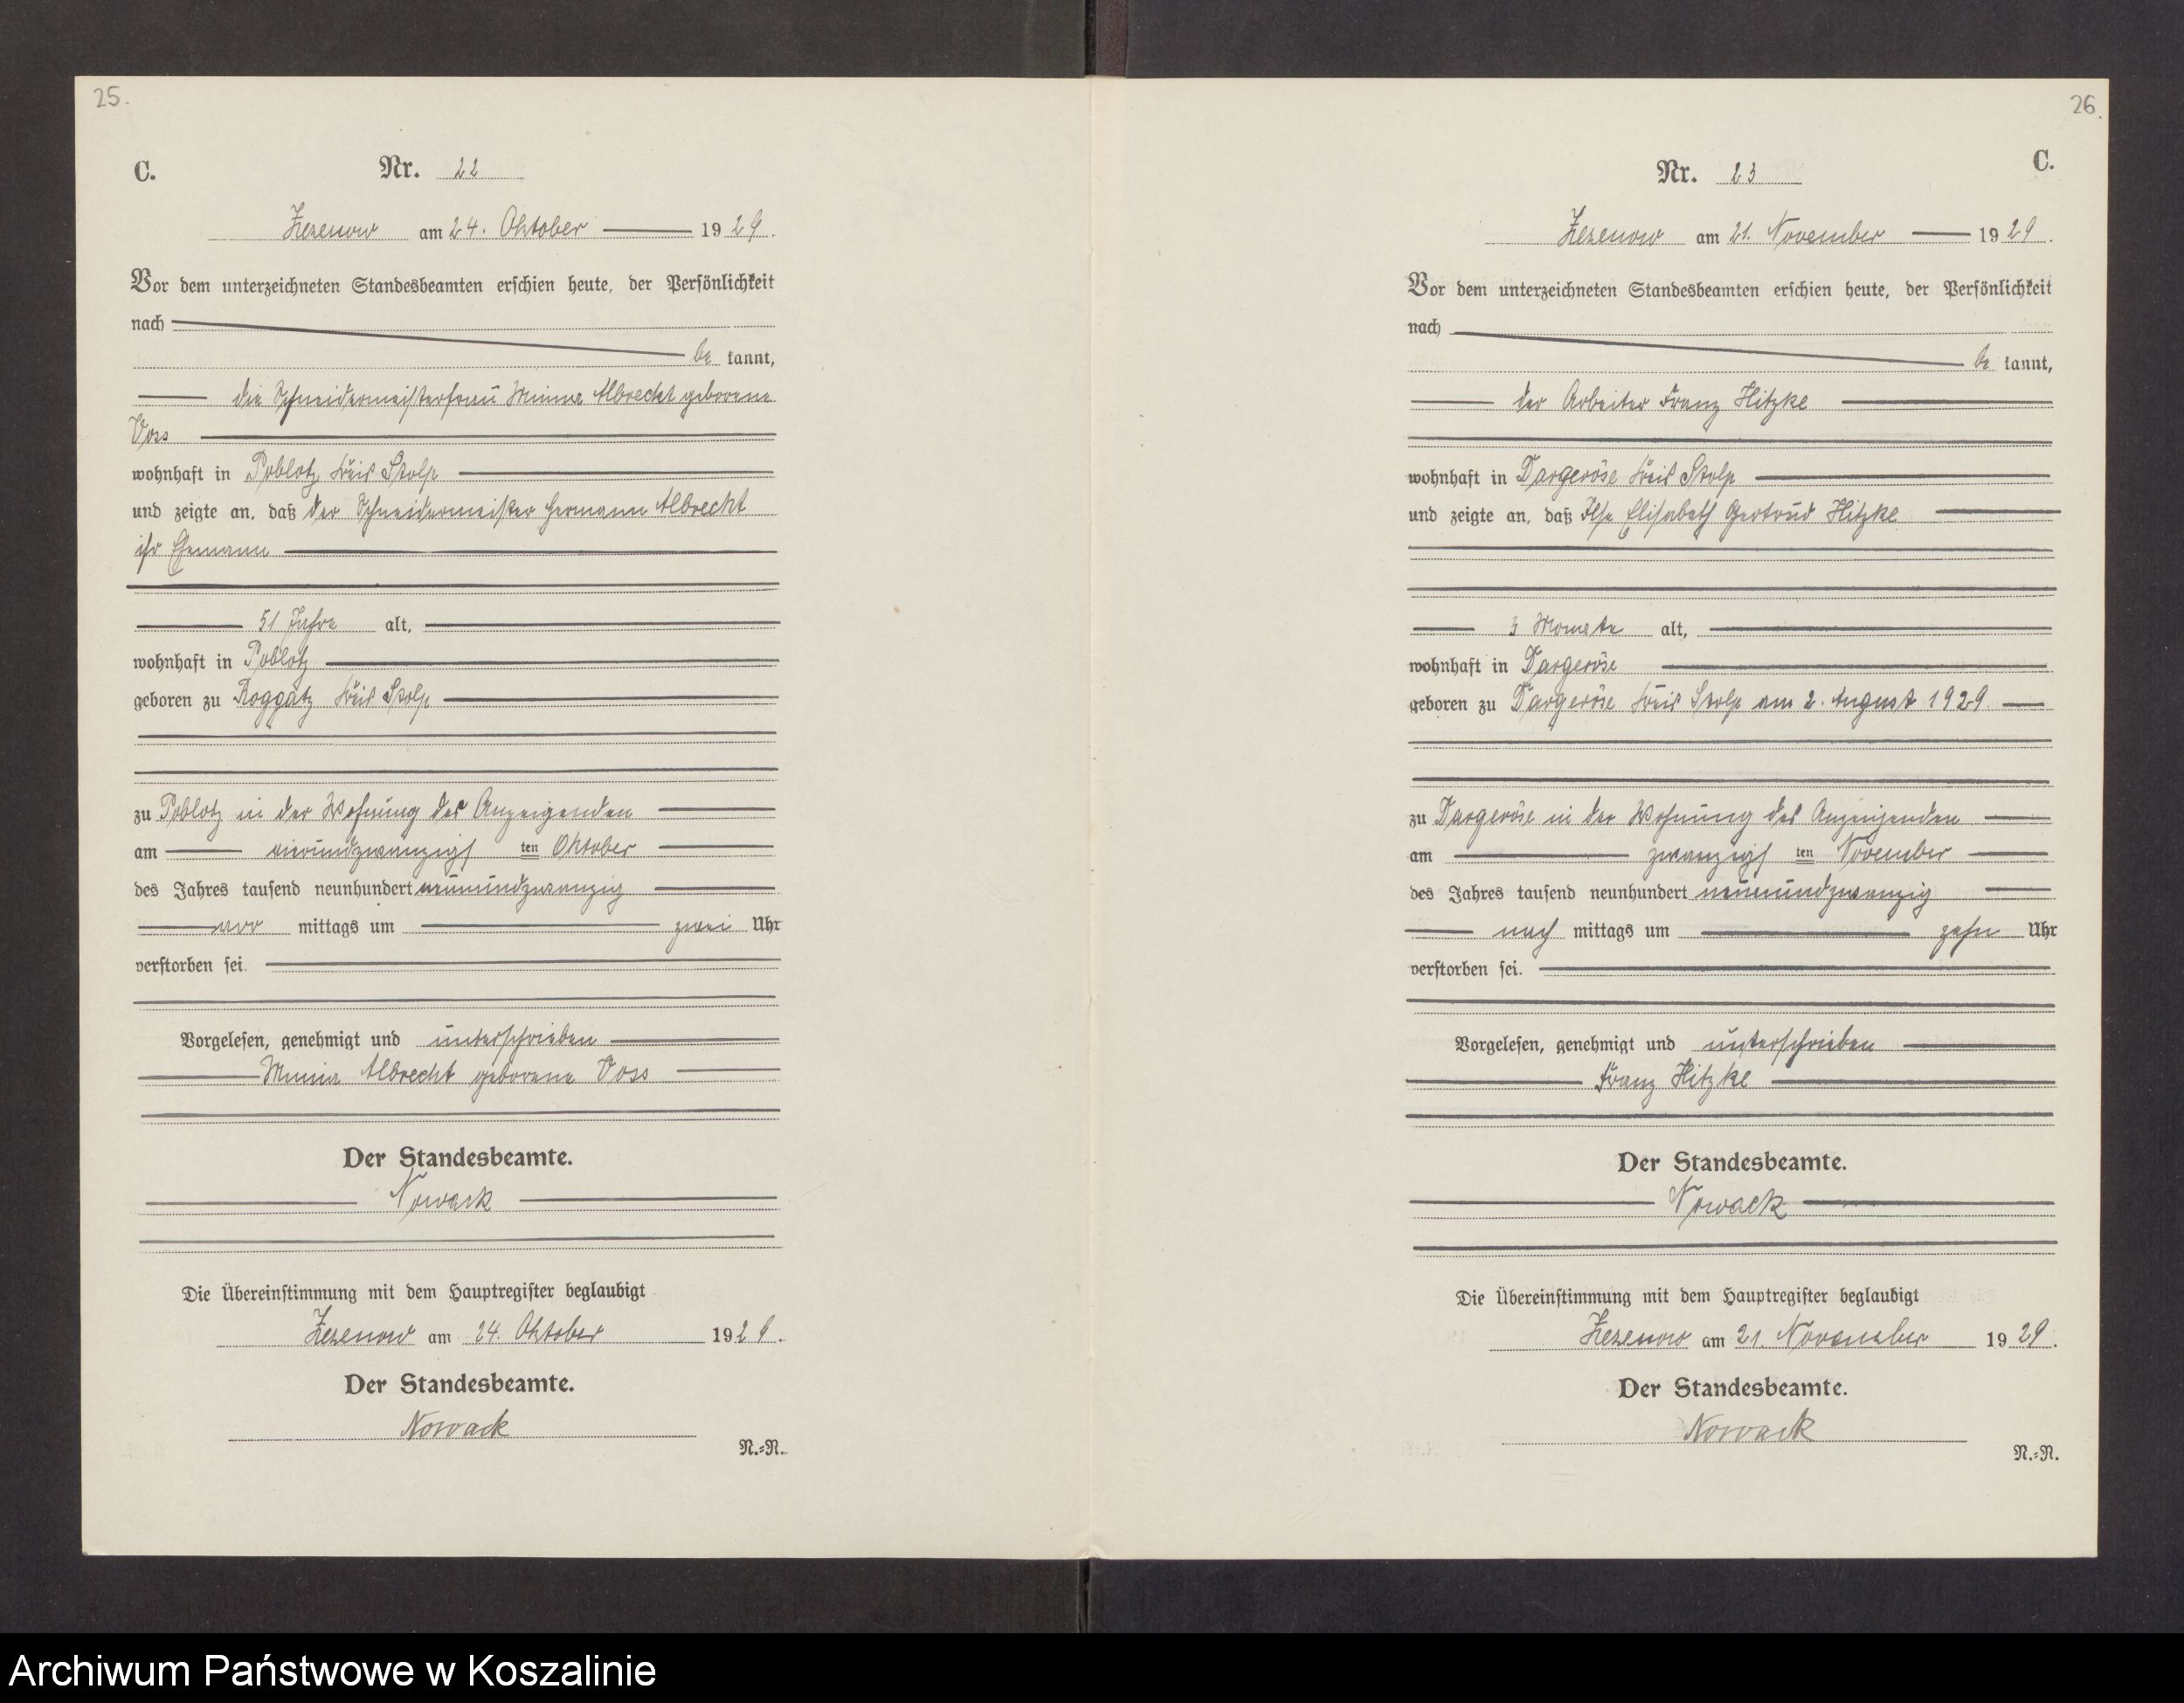 25.
C.
Nr. 22
Zezenow am 24. Oktober 1929.
Vor dem unterzeichneten Standesbeamten erschien heute, der Persönlichkeit
nach
be kannt,
die Schneidermeisterfrau Minna Albrecht geborene
Voss
wohnhaft in Poblotz Kreis Stolp
und zeigte an, daß der Schneidermeister Hermann Albrecht
ihr Ehemann
51 Jahre alt,
wohnhaft in Poblotz
geboren zu Roggatz Kreis Stolp
zu Poblotz in der Wohnung der Anzeigenden
am vierundzwanzigs ten Oktober
des Jahres tausend neunhundert neunundzwanzig
vor mittags um zwei Uhr
verstorben sei.
Vorgelesen, genehmigt und unterschrieben
Minna Albrecht geborene Voss
Der Standesbeamte.
Nowack
Die Übereinstimmung mit dem Hauptregister beglaubigt
Zezenow am 24. Oktober 1929.
Der Standesbeamte.
Nowack
N.=N.
26.
C.
Nr. 23
Zezenow am 21. November 1929.
Vor dem unterzeichneten Standesbeamten erschien heute, der Persönlichkeit
nach
be kannt,
der Arbeiter Franz Hitzke
wohnhaft in Dargeröse Kreis Stolp
und zeigte an, daß Ilse Elisabeth Gertrud Hitzke
3 Monate alt,
wohnhaft in Dargeröse
geboren zu Dargeröse Kreis Stolp am 2. August 1929.
zu Dargeröse in der Wohnung des Anzeigenden
am zwanzigs ten November
des Jahres tausend neunhundert neunundzwanzig
nach mittags um zehn Uhr
verstorben sei.
Vorgelesen, genehmigt und unterschrieben
Franz Hitzke
Der Standesbeamte.
Nowack
Die Übereinstimmung mit dem Hauptregister beglaubigt
Zezenow am 21. November 1929.
Der Standesbeamte.
Nowack
N.=N.
Archiwum Państwowe w Koszalinie